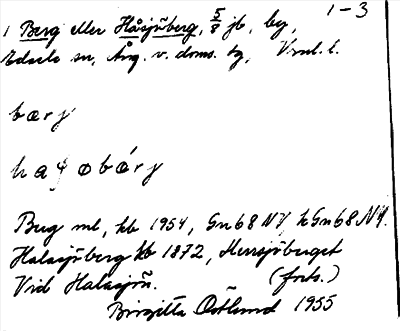 1-3
1 Berg eller Håsjöberg, 5/8 jb, by,
Edsele sn, Ång. v. doms. tg, Vnrl. l.
bærj
Berg ml, kb 1954, Gn68 NV, kGn68 NV.
Halasjöberg kb 1872, Hersjöberget
Vid Halasjön. (forts.)
Birgitta Östlund 1955